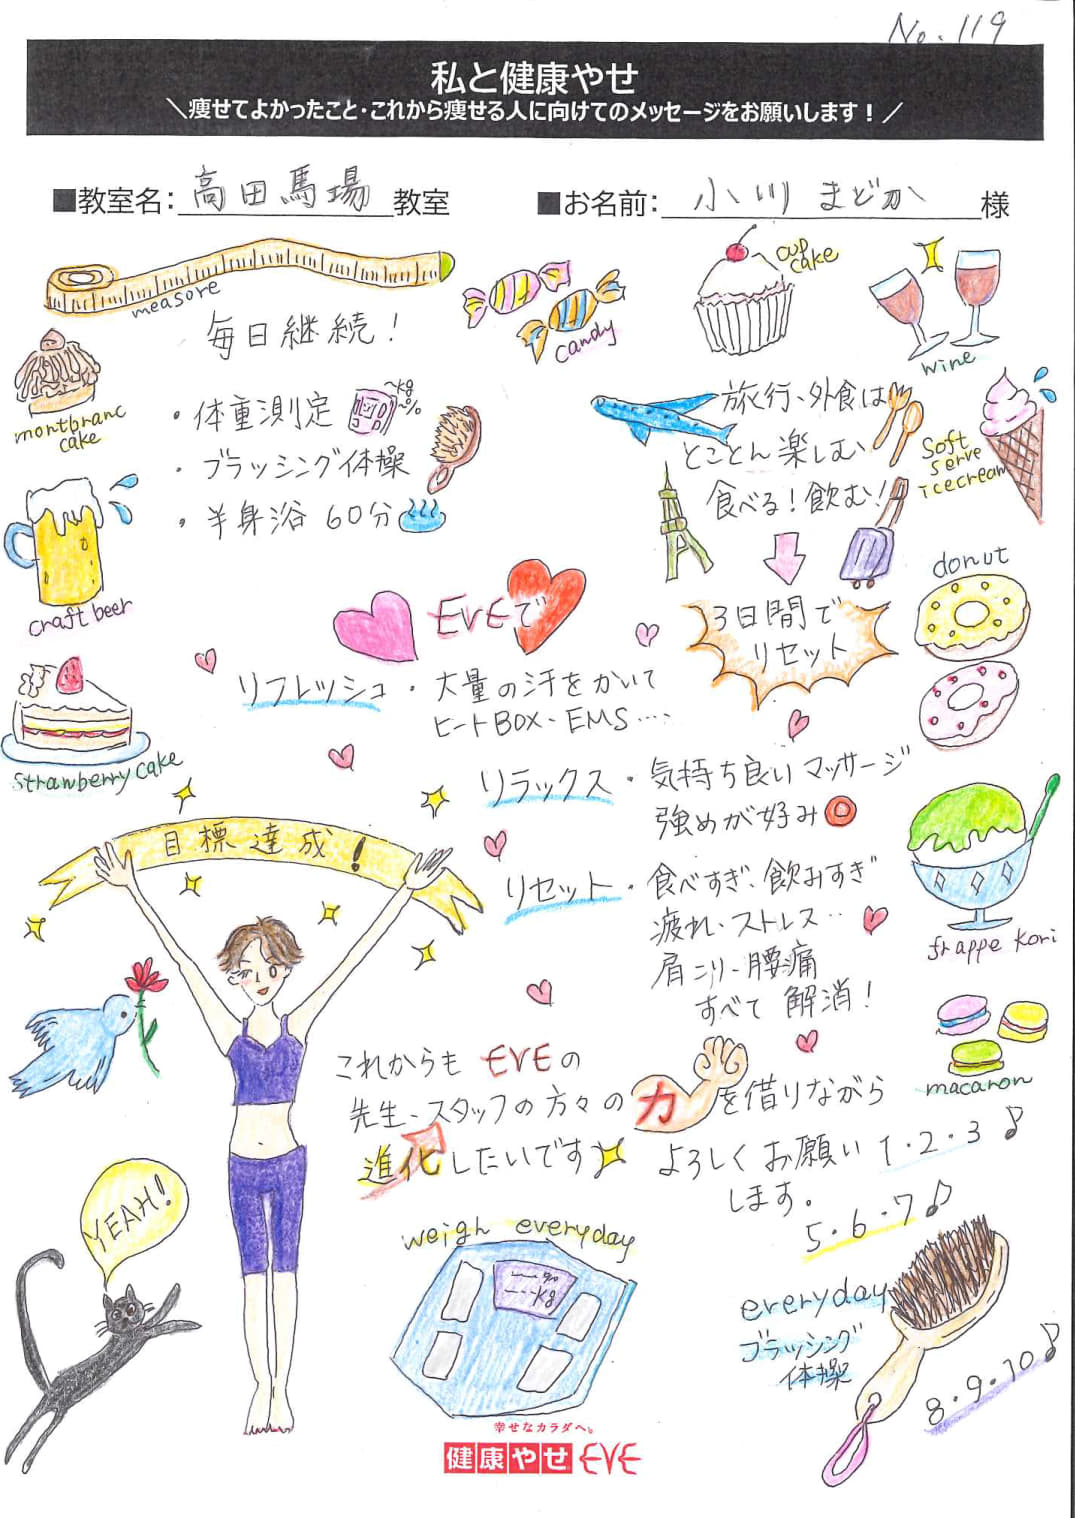 No.119
私と健康やせ
＼痩せてよかったこと・これから痩せる人に向けてのメッセージをお願いします！／
■教室名：高田馬場教室
■お名前：小川まどか様
measore
毎日継続！
candy
cup
cake
wine
montbranc
cake
・体重測定
~kg
~%
・ブラッシング体操
・半身浴 60分
旅行、外食は
とことん楽しむ
食べる！飲む！
Soft
serve
icecream
craft beer
3日間で
リセット
donut
EVEで
リフレッシュ・大量の汗をかいて
ヒートBOX、EMS....
strawberry cake
リラックス・気持ち良いマッサージ
強めが好み◎
目標達成！
リセット・食べすぎ、飲みすぎ
疲れ、ストレス‥
肩こり、腰痛
すべて 解消！
frappe Kori
macaron
これからも EVEの
先生、スタッフの方々の力を借りながら
進化したいです
よろしく お願い 1・2・3♪
します。
5・6・7♪
YEAH!
weigh everyday
%
kg
everyday
ブラッシング
体操
8・9・10♪
幸せなカラダへ。
健康やせ EVE